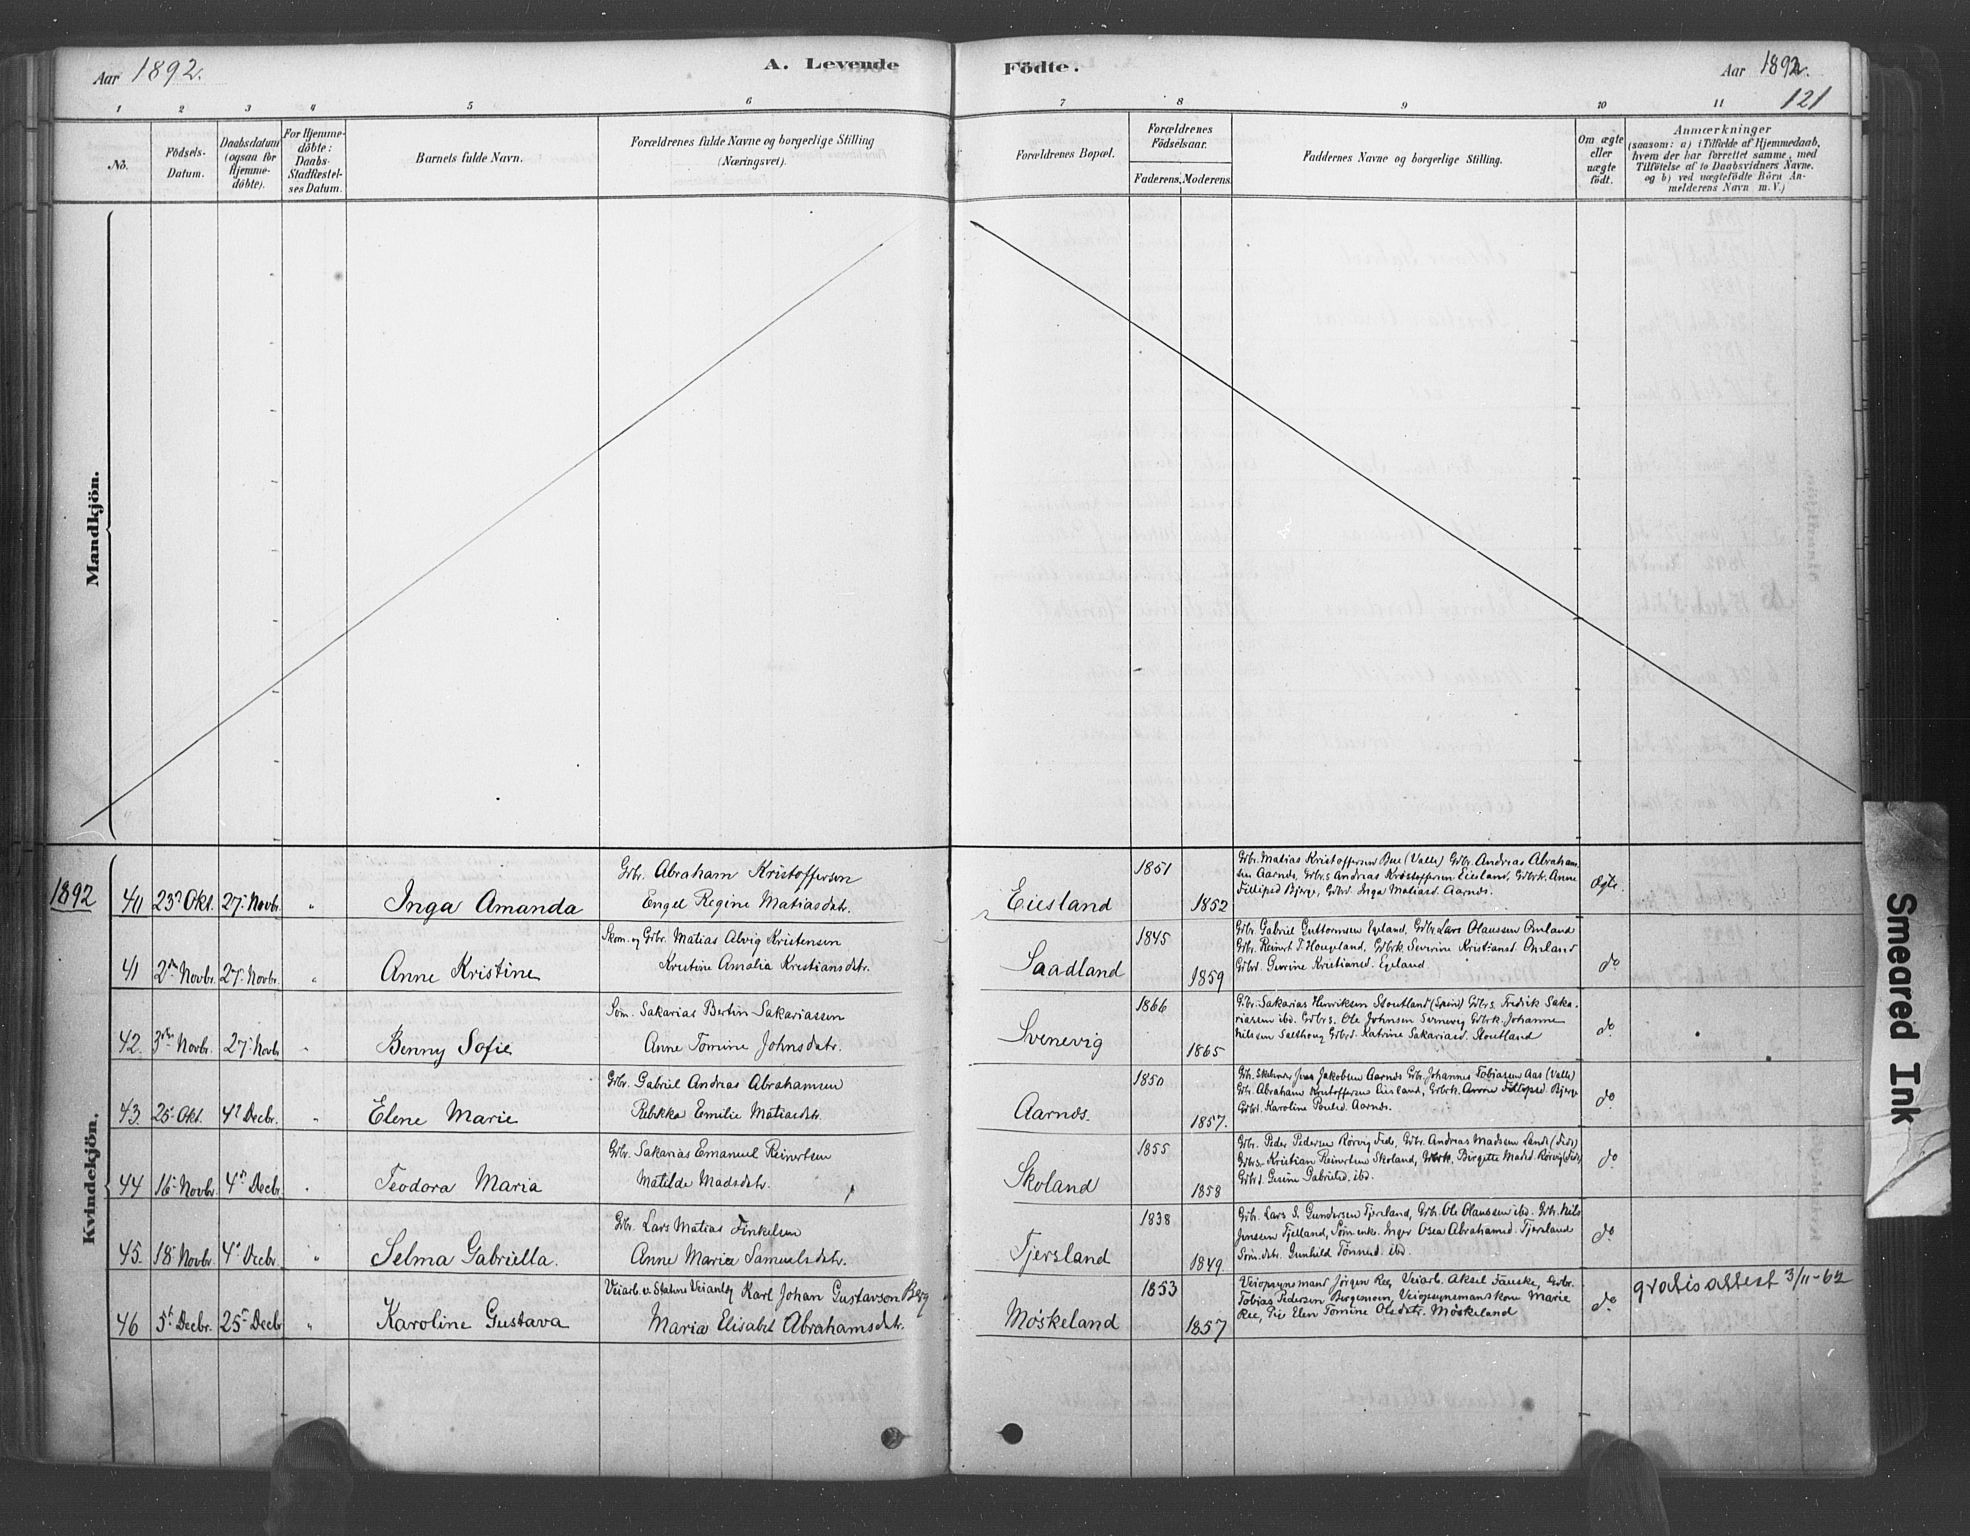 Aar 1892.
A. Levende
Födte.
Aar 1892.
121
1 2 3 4 5 6 7 8 9 10 11
No.
Födsels-
Datum.
Daabsdatum
(ogsaa for
Hjemme-
döbte).
For Hjemme-
döbte:
Daabs-
Stadfæstel-
ses Datum.
Barnets fulde Navn.
Forældrenes fulde Navne og borgerlige Stilling
(Næringsvei).
Forældrenes Bopæl.
Forældrenes
Födselsaar.
Faderens. Moderens.
Faddernes Navne og borgerlige Stilling.
Om ægte
eller
uægte
födt.
Anmærkninger
(saasom: a) i Tilfælde af Hjemmedaab,
hvem der har forrettet samme, med
Tilföielse af to Daabsvidners Navne.
og b) ved uægtefödte Börn An-
melderens Navn m. V.)
Mandkjön.
Kvindekjön.
1892
40 23 Okt. 27 Novbr. " Inga Amanda
Gbr. Abraham Kristoffersen
Engel Regine Matiasdatr.
Eiesland 1851 1852
Gbr. Matias Kristoffersen Bue (Valle) Gbr. Andreas Abraham
sen Aarnds, Gbrs. Andreas Kristoffersen Eiesland, Gbrk. Anne
Fillipsd Bjerge, Gbrd. Inga Matiasd. Aarnds.
Ægte.
41 2 Novbr. 27 Novbr. " Anne Kristine
Skom. og Gbr. Matias Alvig Kristensen
Kristine Amalia Kristiansdatr.
Saadland 1845 1859
Gbr. Gabriel Guttormsen Egeland, Gbr. Lars Olaussen Omland
Gbr. Reinert T. Hougeland, Gbrk. Severine Kristiansd. Omland
Gbrd. Gurine Kristiansd. Egeland.
do
42. 3 Novbr. 27 Novbr " Benny Sofie
Søm. Sakarias Bertin Sakariassen
Anne Tomine Johnsdatr.
Svenevig 1866 1865
Gbr. Sakarias Henriksen Stoutland (Spind) Gbrs. Fredrik Saka-
riassen ibd. Gbrs. Ole Johnsen Svenevig Gbrk. Johanne
Nilssen Gbrd. Katrine Sakariasd. Stoutland
do
43. 25 Okt. 4 Decbr. " Elene Marie
Gbr. Gabriel Andreas Abrahamsen
Rebekka Emilie Matiasdtr.
Aarnds. 1850 1857.
Jakobsen Aarnds Gbr. Johannes Tobiasen Aas (Valle)
Gbr. Abraham Kristoffersen Eiesland, Gbrk. Anne Fillipsd. Bjerge
Gbrd. Karoline Poulsd. Aarnds.
do
44 16 Novbr. 4 Decbr. " Teodora Maria
Gbr. Sakarias Emanuel Reinertsen
Matilde Madsdtr.
Skoland 1855 1858
Gbr. Peder Pedersen Rørvig Feds, Gbr. Andreas Madsen Lande (Feds)
Gbrs. Kristian Reinertsen Skoland, Gbrk. Birgitte Madsd. Rørvig (Feds)
Gbrd. Gesine Gabrielsd. ibd.
do
45. 18 Novbr. 4 Decbr. " Selma Gabriella.
Gbr. Lars Matias Finkelsen
Anne Maria Samuelsdatr.
Tjersland 1838 1849.
Gbr. Lars S. Gundersen Tjersland, Gbr. Ole Olaussen ibd. Gbr. Nils
Jenssen Tjelland, Søm.enke Inger Osea Abrahamsd. Tjersland
Søm.dtr. Gunhild Tønnesd. ibd.
do
46 5 Decbr. 25 Decbr " Karoline Gustava
Veiarb. v. Statens Veianlæg Karl Johan Gustavson Berg
Maria Elisabet Abrahamsdtr.
Møskeland 1853 1857
Veiopsynsmand Jørgen Ree, Veiarb. Aksel Fauske, Gbr.
Tobias Pedersen Birgemoen, Veiopsynsmanskone Marie
Ree, Pie Elen Tomine Olsdtr. Møskeland
do gratisattest 3/11-62
Smeared Ink